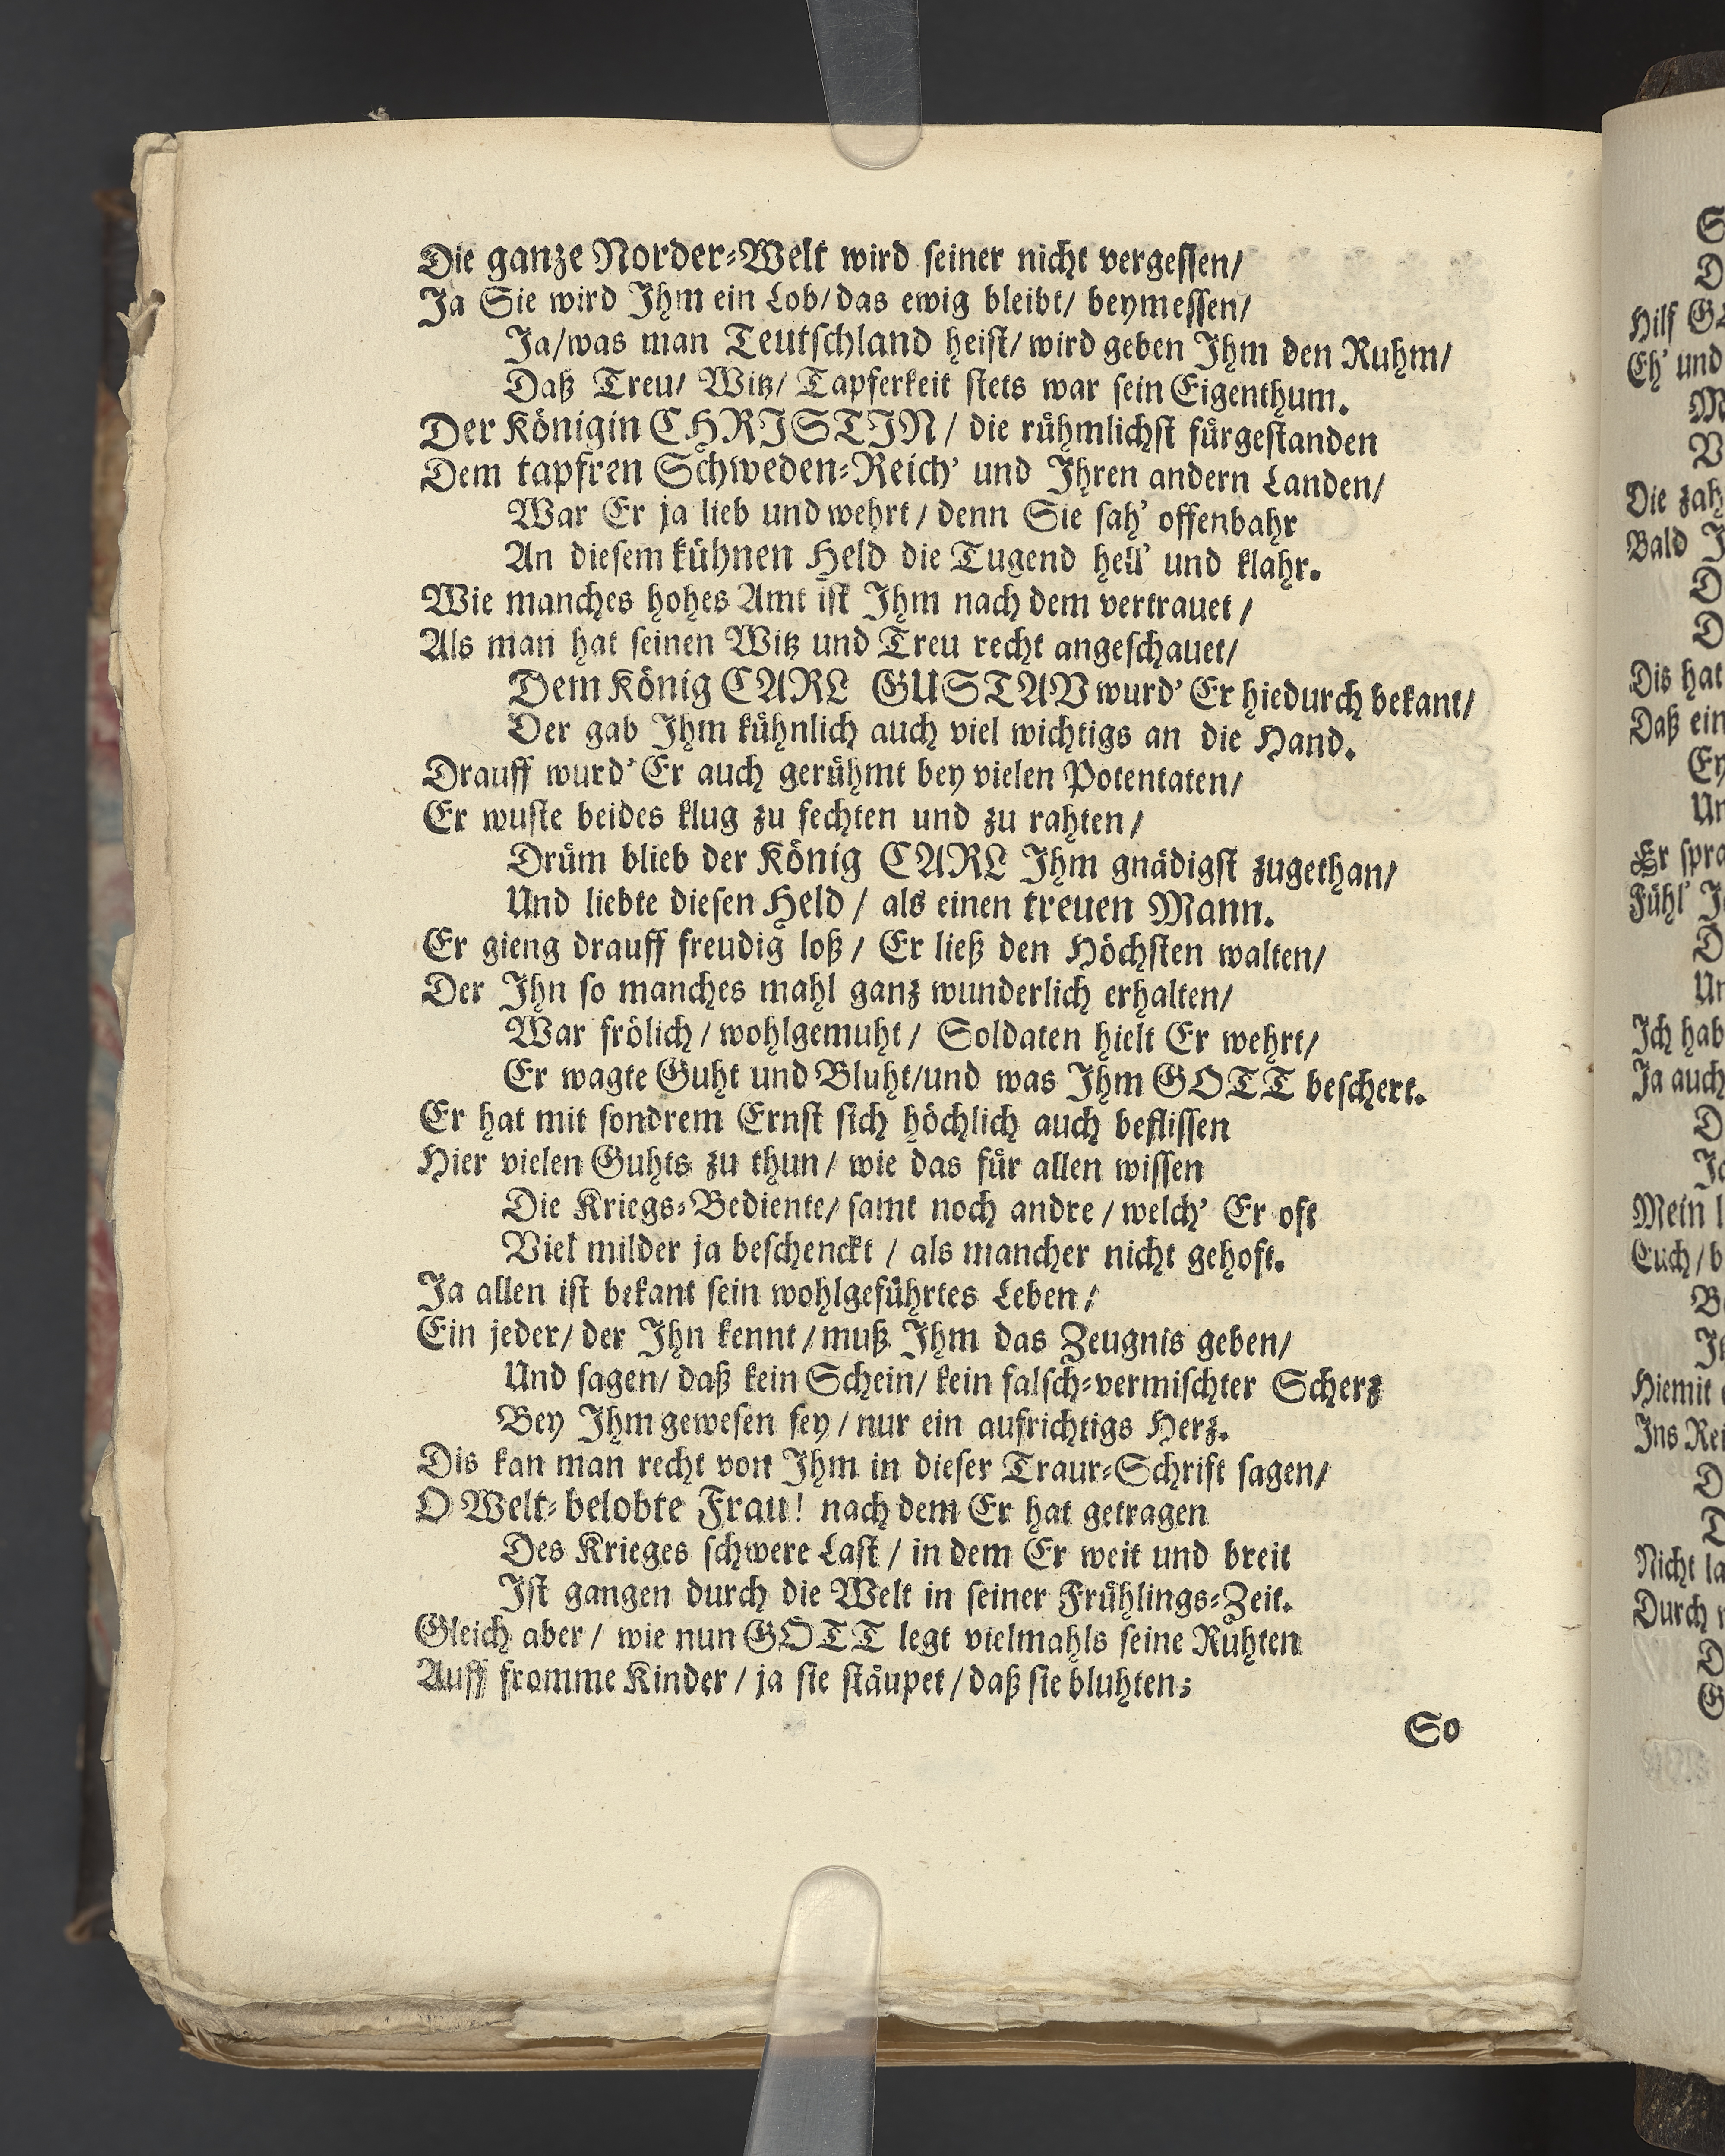 Die ganze Norder-Welt wird ſeiner nicht vergeſſen/
Ja Sie wird Ihm ein Lob/das ewig bleibt/ beymeſſen/
Ja/was man Teutſchland heiſt/ wird geben Ihm den Ruhm/
Daß Treu/ Witz/ Tapferkeit ſtets war ſein Eigenthum.
Der Königin CHRISTIN/ die rühmlichſt fürgeſtanden
Dem tapfren Schweden-Reich' und Ihren andern Landen/
War Er ja lieb und wehrt/ denn Sie ſah' offenbahr
An dieſem kühnen Held die Tugend hell' und klahr.
Wie manches hohes Amt iſt Ihm nach dem vertrauet/
Als man hat ſeinen Witz und Treu recht angeſchauet/
Dem König CARL GUSTAV wurd' Er hiedurch bekant/
Der gab Ihm kühnlich auch viel wichtigs an die Hand.
Drauff wurd' Er auch gerühmt bey vielen Potentaten/
Er wuſte beides klug zu fechten und zu rahten/
Drüm blieb der König CARL Ihm gnädigſt zugethan/
Und liebte dieſen Held/ als einen treuen Mann.
Er gieng drauff freudig loß/ Er ließ den Höchſten walten/
Der Ihn ſo manches mahl ganz wunderlich erhalten/
War frölich/ wohlgemuht/ Soldaten hielt Er wehrt/
Er wagte Guht und Bluht/und was Ihm GOTT beſchert.
Er hat mit ſondrem Ernſt ſich höchlich auch befliſſen
Hier vielen Guhts zu thun/ wie das für allen wiſſen
Die Kriegs-Bediente/ ſamt noch andre/ welch' Er oft
Viel milder ja beſchenckt/ als mancher nicht gehoft.
Ja allen iſt bekant ſein wohlgeführtes Leben/
Ein jeder/ der Ihn kennt/ muß Ihm das Zeugnis geben/
Und ſagen/ daß kein Schein/ kein falſch-vermiſchter Scherz
Bey Ihm geweſen ſey/ nur ein aufrichtigs Herz.
Dis kan man recht von Ihm in dieſer Traur-Schrift ſagen/
O Welt-belobte Frau! nach dem Er hat getragen
Des Krieges ſchwere Laſt/ in dem Er weit und breit
Iſt gangen durch die Welt in ſeiner Frühlings-Zeit.
Gleich aber/ wie nun GOTT legt vielmahls ſeine Ruhten
Auff fromme Kinder/ ja ſie ſtäupet/ daß ſie bluhten;
So
Hilf
Eh' und
Die zah
Bald
Dis hat
Daß ein
Er ſpra
Fühl'
Ich hab
Ja auch
Mein l
Euch/ b
Hiemit
Ins Rei
Nicht la
Durch